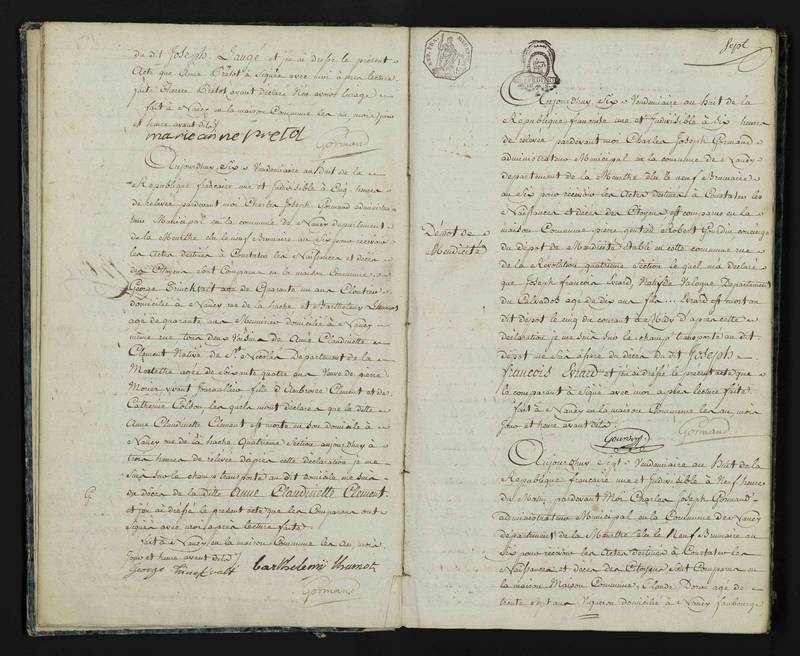 du dit Joseph Laugé et j'ai dressé le present
Acte que Anne Pretot a Signée avec moi a pres lecture
faite therese Pretot ayant declaré
fait a Nancy en la maison Commune les an mois jour
et heure avant dits
marie anne pretot
Gormand
Aujourdhuy Six Vendemiaire an huit de la
Republique francaise une et Indivisible à Cinq heures
de relevée pardevant moi Charles Joseph Gormand administra=
teur Municipal en la commune de Nancy departement
de la Meurthe élu le neuf Brumaire an Six pour recevoir
les Actes destinés à Constater les Naissances et décès
des Citoyens sont Comparus en la maison Commune
George age de Quarante un ans Cloutier
domicilié a Nancy rue de la hache et Barthelemy
agé de quarante ans Menuisier domicilié à Nancy
même rue tous deux Voisins de Anne Claudinette
Clement Native de St. Nicolas Departement de la
Meurthe agée de Soixante quatre ans Veuve de pierre
Monier vivant Journallier fille d'Ambroise Clement et de
Catherine Colson les quels m'ont déclaré que la ditte
Anne Claudinette Clement est morte en son domicile à
Nancy rue de la hache Quatrieme Section aujourdhuy à
trois heures de relevée d'après cette déclaration je me
Suis Sur le champ transporté au dit domicile me suis
du décès de la ditte Anne Claudinette Clement
et j'ai dressé le present acte que les Comparans ont
Signés avec moi apres lecture faite
fait à Nancy en la maison Commune les an mois
Jour et heure avant dits
George barthelemi
Gormand
Sept
Aujourdhuy Six Vendemiaire an huit de la
Republique francaise une et Indivisible à Six heures
de relevée pardevant moi Charles Joseph Gormand
administrateur Municipal en la commune de Nancy
departement de la Meurthe élu le neuf Brumaire
an Six pour recevoir les Actes destinés à Constater les
Naissances et décès des Citoyens est comparu en la
maison Commune pierre quentin Robert Gourdin concierge
Dépot de
Mendicité
du Depot de Mendicité établi en cette commune rue
de la Révolution quatrieme Section le quel m'a déclaré
que Joseph francois Evard Natif de Valogne Departement
du Calvados age de dix ans fils ... Evard est mort au
dit dépot le cinq du courant à Midy d'apres cette
déclaration je me suis Sur le champ transporté au dit
depot me suis assuré du décès du dit Joseph
francois Evard et j'ai dressé le present acte que
le comparant à Signé avec moi apres lecture faite
fait à Nancy en la maison Commune les an mois
Jour et heure avant dits
Gormand
Aujourdhuy Sept Vendemiaire an Huit de la
Republique francaise une et Indivisible à Neuf heures
du Matin pardevant Moi Charles Joseph Gormand
administrateur Municipal en la Commune de Nancy
departement de la Meurthe élu le Neuf Brumaire an
Six pour recevoir les Actes destinés à Constater les
Naissances et décès des Citoyens est Comparu en
la maison Maison Commune Claude age de
trente Sept ans Vigneron domicilié à Nancy faubourg